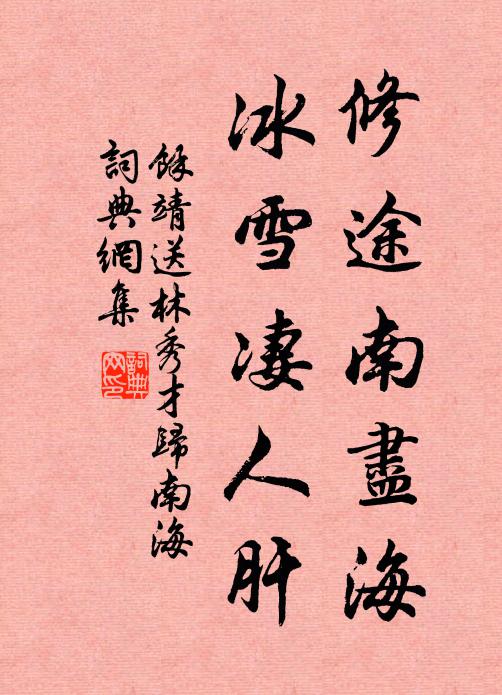 修途南盡海
冰雪凄人肝
餘靖送林秀才歸南海
詞典網集
詞典
网印